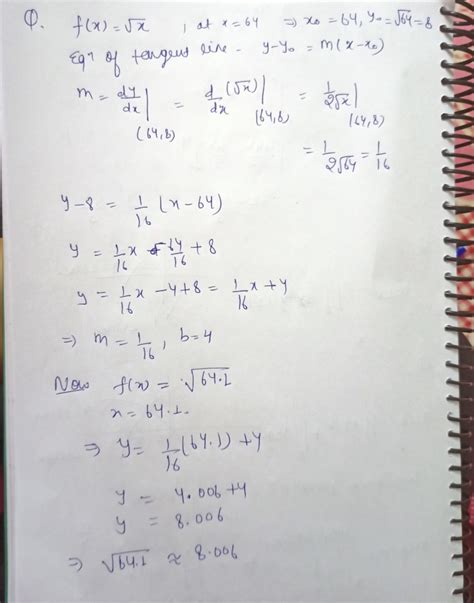 Q. f(x) = √x , at x = 64 ⇒ x₀ = 64, y₀ = √64 = 8
Eqⁿ of tangent line - y-y₀ = m(x-x₀)
m = dy/dx |(64,8) = d/dx (√x) |(64,8) = 1/2√x |(64,8)
= 1/2√64 = 1/16
y-8 = 1/16 (x-64)
y = 1/16 x - 64/16 + 8
y = 1/16 x - 4+8 = 1/16 x + 4
⇒ m = 1/16 , b = 4
Now f(x) = √64.1
x = 64.1.
⇒ y = 1/16 (64.1) + 4
y = 4.006 + 4
y = 8.006
⇒ √64.1 ≈ 8.006